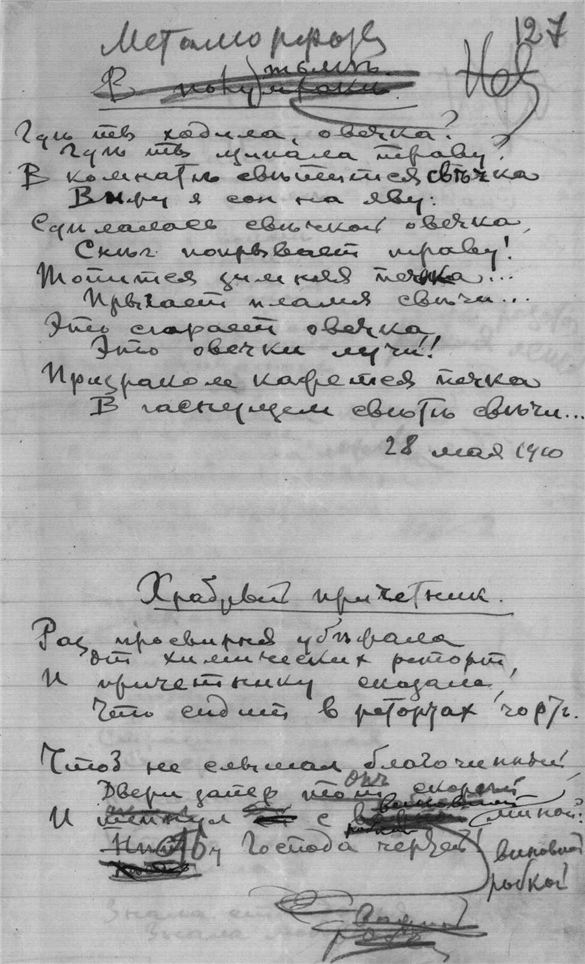 127
Метаморфоза
Нет
В полу тьмѣ
Гдѣ ты ходила, овечка?
Гдѣ ты щипала траву?
В комнатѣ свѣтится свѣчка
Вижу я сон на яву:
Сдѣлалась свѣчкой овечка,
Снѣг покрывает траву!
Топится зимняя печка...
Прыгает пламя свѣчи...
Это сгорает овечка,
Это овечки лучи!!
Призраком кажется печка
В гаснущем свѣтѣ свѣчи...
28 мая 1910
Храбрый причетник.
Раз просвирня убѣжала
От химических реторт,
И причетнику сказала,
Что сидит в ретортах чорт.
Чтоб не слышал благочинный
Двери запер он скорѣй
И шепнул с виновной миной:
У Господа чертей!
виновной
робкой